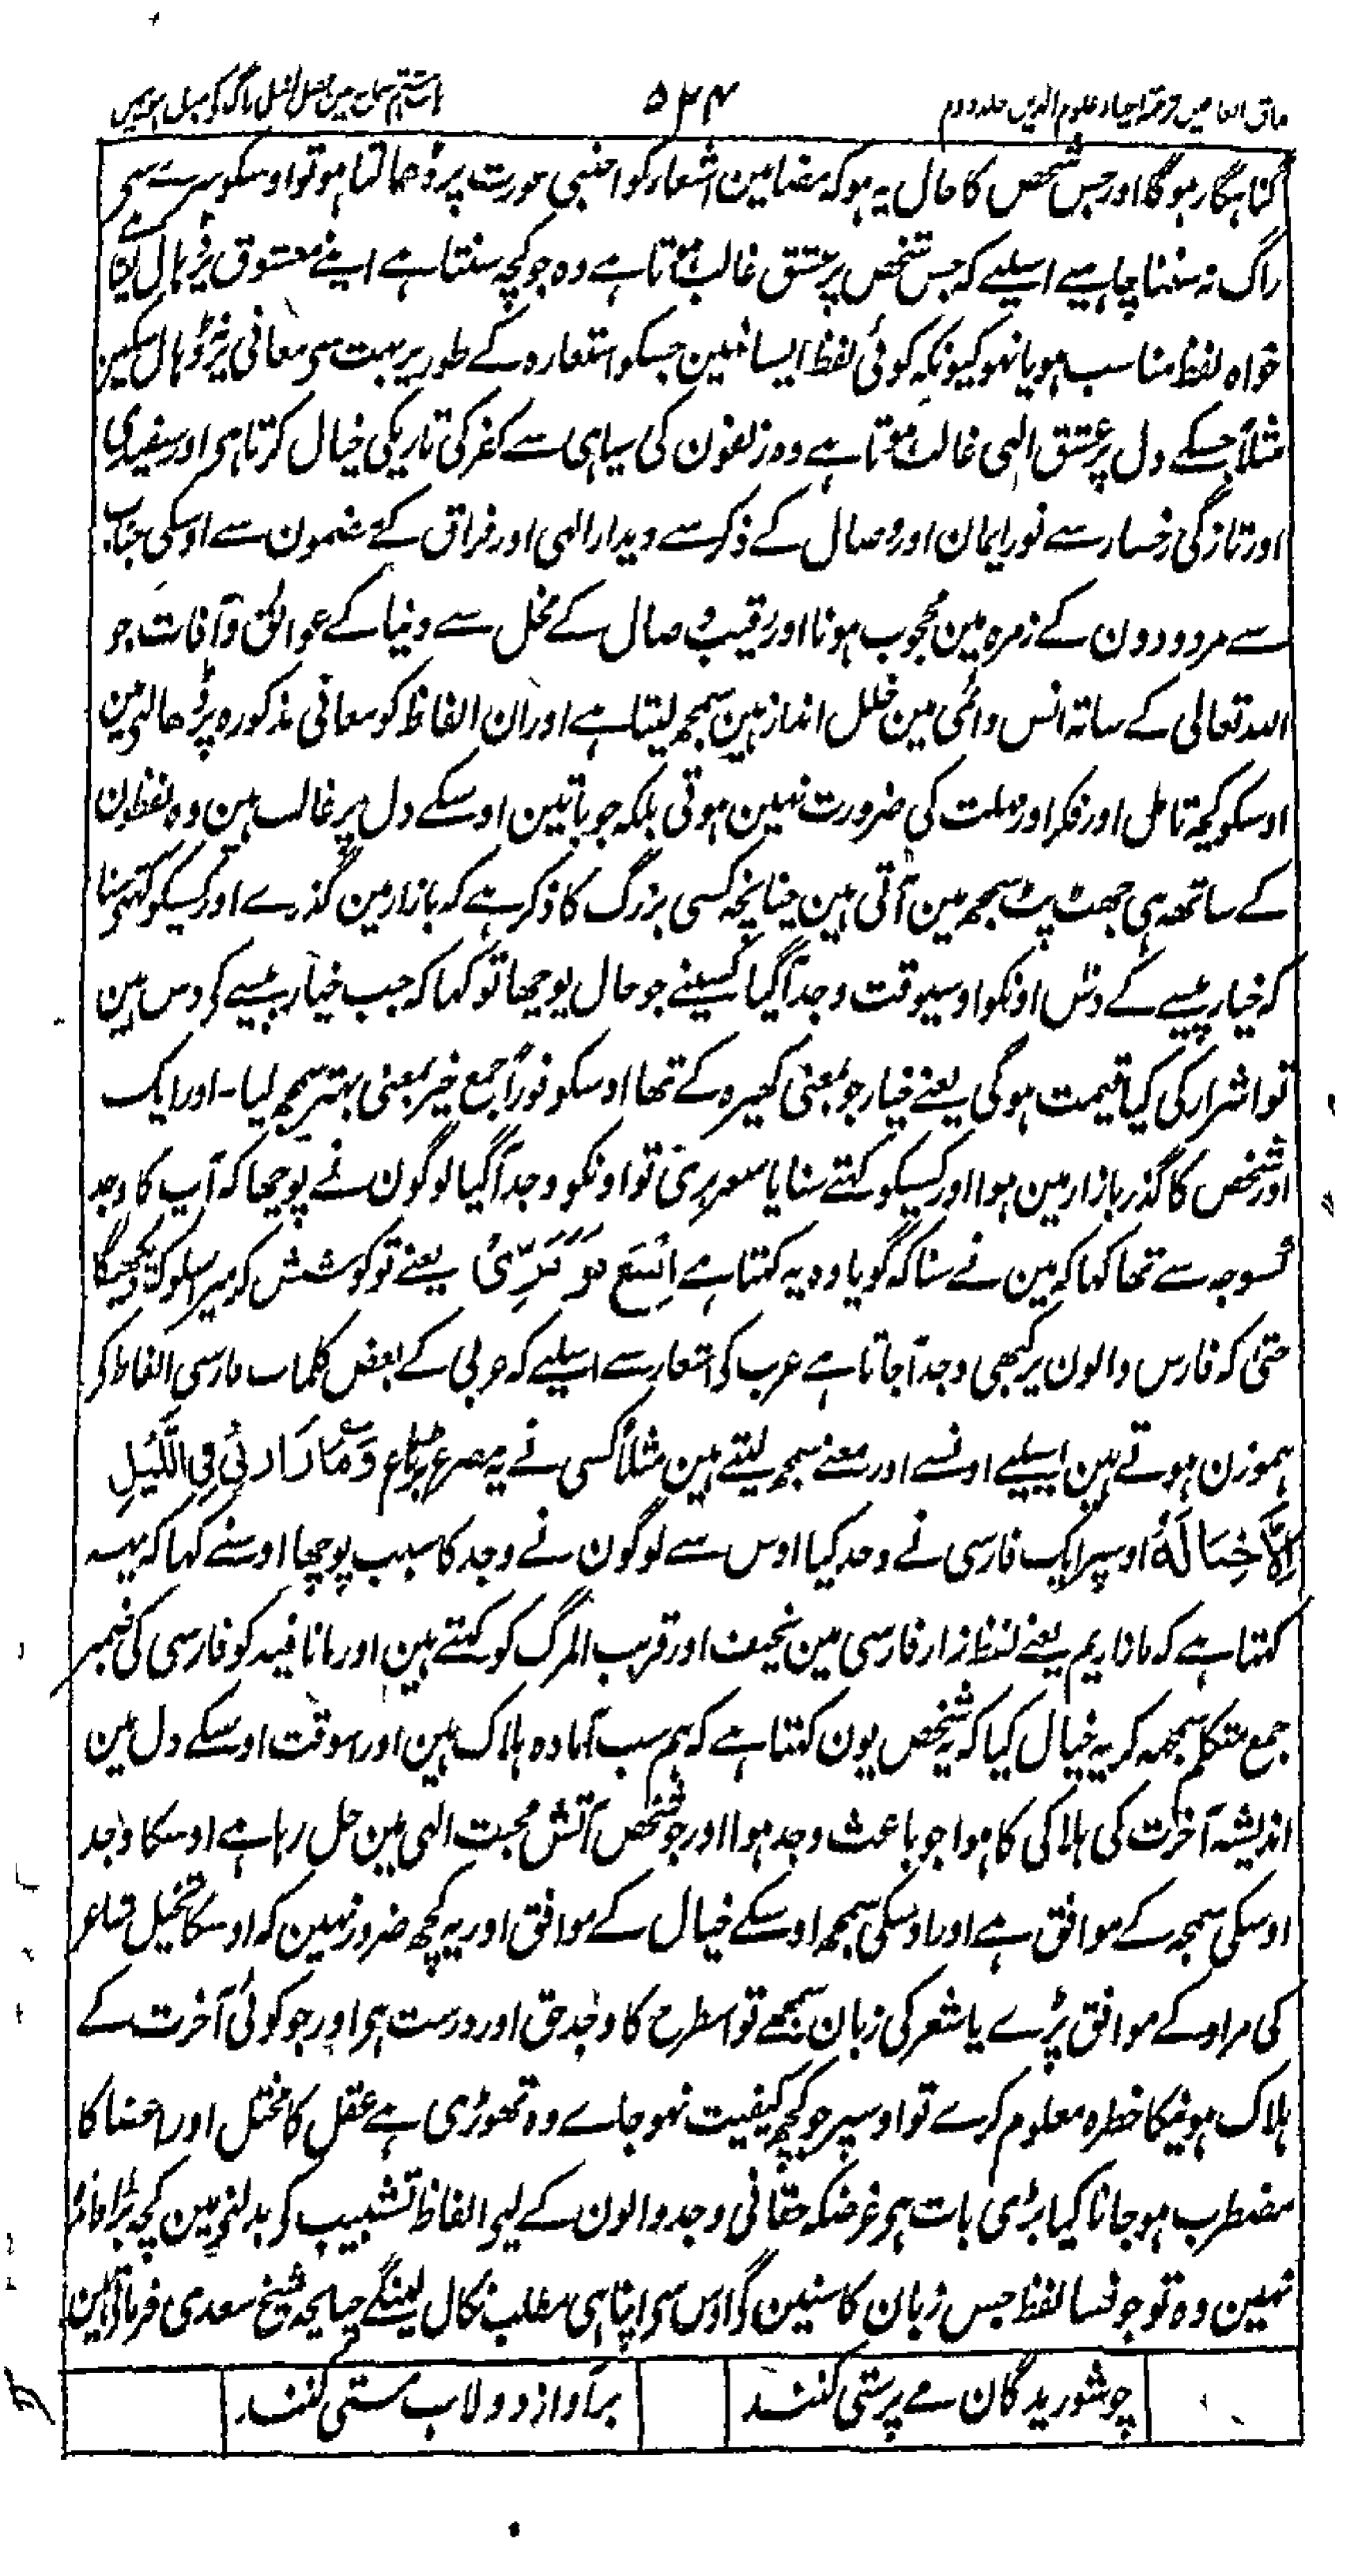 مذاق العارفین ترجمۂ احیاء علوم الدین جلد دوم ۵۲۴
گناہگار ہوگا اور جس شخص کا حال یہ ہو کہ مضامین اشعار کو اجنبی عورت پر ڈھالتا ہو تو اوسکو سرے سے
راگ نہ سننا چاہیے اسلیے کہ جس شخص پر عشق غالب ہوتا ہے وہ جو کچھ سنتا ہے اپنے معشوق پر ڈھال لیگا
خواہ لفظ مناسب ہو یا نہو کیونکہ کوئی لفظ ایسا نہین جسکو استعارہ کے طور پر بہت سی معانی پر نڈھال سکین
مثلاً جسکے دل پر عشق الہی غالب ہوتا ہے وہ زلفون کی سیاہی سے کفر کی تاریکی خیال کرتا ہی اور سفیدی
اور تازگی رخسار سے نور ایمان اور وصال کے ذکر سے دیدار الہی اور فراق کے مضمون سے اوسکی جناب
سے مردودون کے زمرہ مین محجوب ہونا اور رقیب وصال کے مخل سے دنیا کے عوائق و آفات جو
اللہ تعالی کے ساتہ انس دائمی مین خلل انداز ہین سمجھ لیتا ہے اور ان الفاظ کو معانی مذکورہ پر ڈھالنی مین
اوسکو کچھ تامل اور فکر اور مہلت کی ضرورت نہین ہوتی بلکہ جو باتین اوسکے دل پر غالب ہین وہ لفظون
کے ساتھ ہی جھٹ پٹ سمجھ مین آتی ہین چنانچہ کسی بزرگ کا ذکر ہے کہ بازار مین گذرے اور کسیکو کہتی سنا
کہ خیار پیسے کے دس اونکو اوسیوقت وجد آگیا کسینے جو حال پوچھا تو کہا کہ جب خیار پیسے کی دس ہین
تو اشرار کی کیا قیمت ہوگی یعنے خیار جو بمعنی کھیرہ کے تھا اوسکو فوراً جمع خیر بمعنی بہتر سمجھ لیا۔ اور ایک
اور شخص کا گذر بازار مین ہوا اور کسیکو کہتے سنا یا سعتر بری تو اونکو وجد آگیا لوگون نے پوچھا کہ آپ کا وجد
کسوجہ سے تھا کہا کہ مین نے سنا کہ گویا وہ یہ کہتا ہے اِسْعَ تَرَ بِرِّیْ یعنے تو کوشش کر میرا سلوک دیکھیگا
حتی کہ فارس والون پر کبھی وجد آجاتا ہے عرب کی اشعار سے اسلیے کہ عربی کے بعض کلمات فارسی الفاظ کی
ہموزن ہوتے ہین اسلیے اونسے اور معنے سمجھ لیتے ہین مثلاً کسی نے یہ مصرع پڑہا ع وَمَا زَارَنِیْ فِی اللَّیْلِ
اِلَّا خِیَالُهٗ اوسپر ایک فارسی نے وجد کیا اوس سے لوگون نے وجد کا سبب پوچھا اوسنے کہا کہ یہ
کہتا ہے کہ ما زاریم یعنے لفظ زار فارسی مین نحیف اور قریب المرگ کو کہتے ہین اور ما نافیہ کو فارسی کی ضمیر
جمع متکلم سمجھ کر یہ خیال کیا کہ یہ شخص یون کہتا ہے کہ ہم سب آمادہ ہلاک ہین اور اسوقت اوسکے دل مین
اندیشہ آخرت کی ہلاکی کا ہوا جو باعث وجد ہوا اور جو شخص آتش محبت الہی مین جل رہا ہے اوسکا وجد
اوسکی سمجھ کے موافق ہے اور اوسکی سمجھ اوسکے خیال کے موافق اور یہ کچھ ضرور نہین کہ اوسکا تخیل شاعر
کی مراد کے موافق پڑے یا شعر کی زبان سمجھے تو اسطرح کا وجد حق اور درست ہی اور جو کوئی آخرت کے
ہلاک ہونیکا خطرہ معلوم کرے تو اوسپر جو کچھ کیفیت نہو جاے وہ تھوڑی ہے عقل کا مختل اور اعضا کا
مضطرب ہو جانا کیا بڑی بات ہی غرضکہ حقانی وجد والون کے لیے الفاظ تشبیب کی بدلنی مین کچھ بڑا فائدہ
نہین وہ تو جونسا لفظ جس زبان کا سنین گی اوس سی اپنا ہی مطلب نکال لینگے چنانچہ شیخ سعدی فرماتی ہین
چو شوریدگان مے پرستی کنند بر آواز دولاب مستی کنند